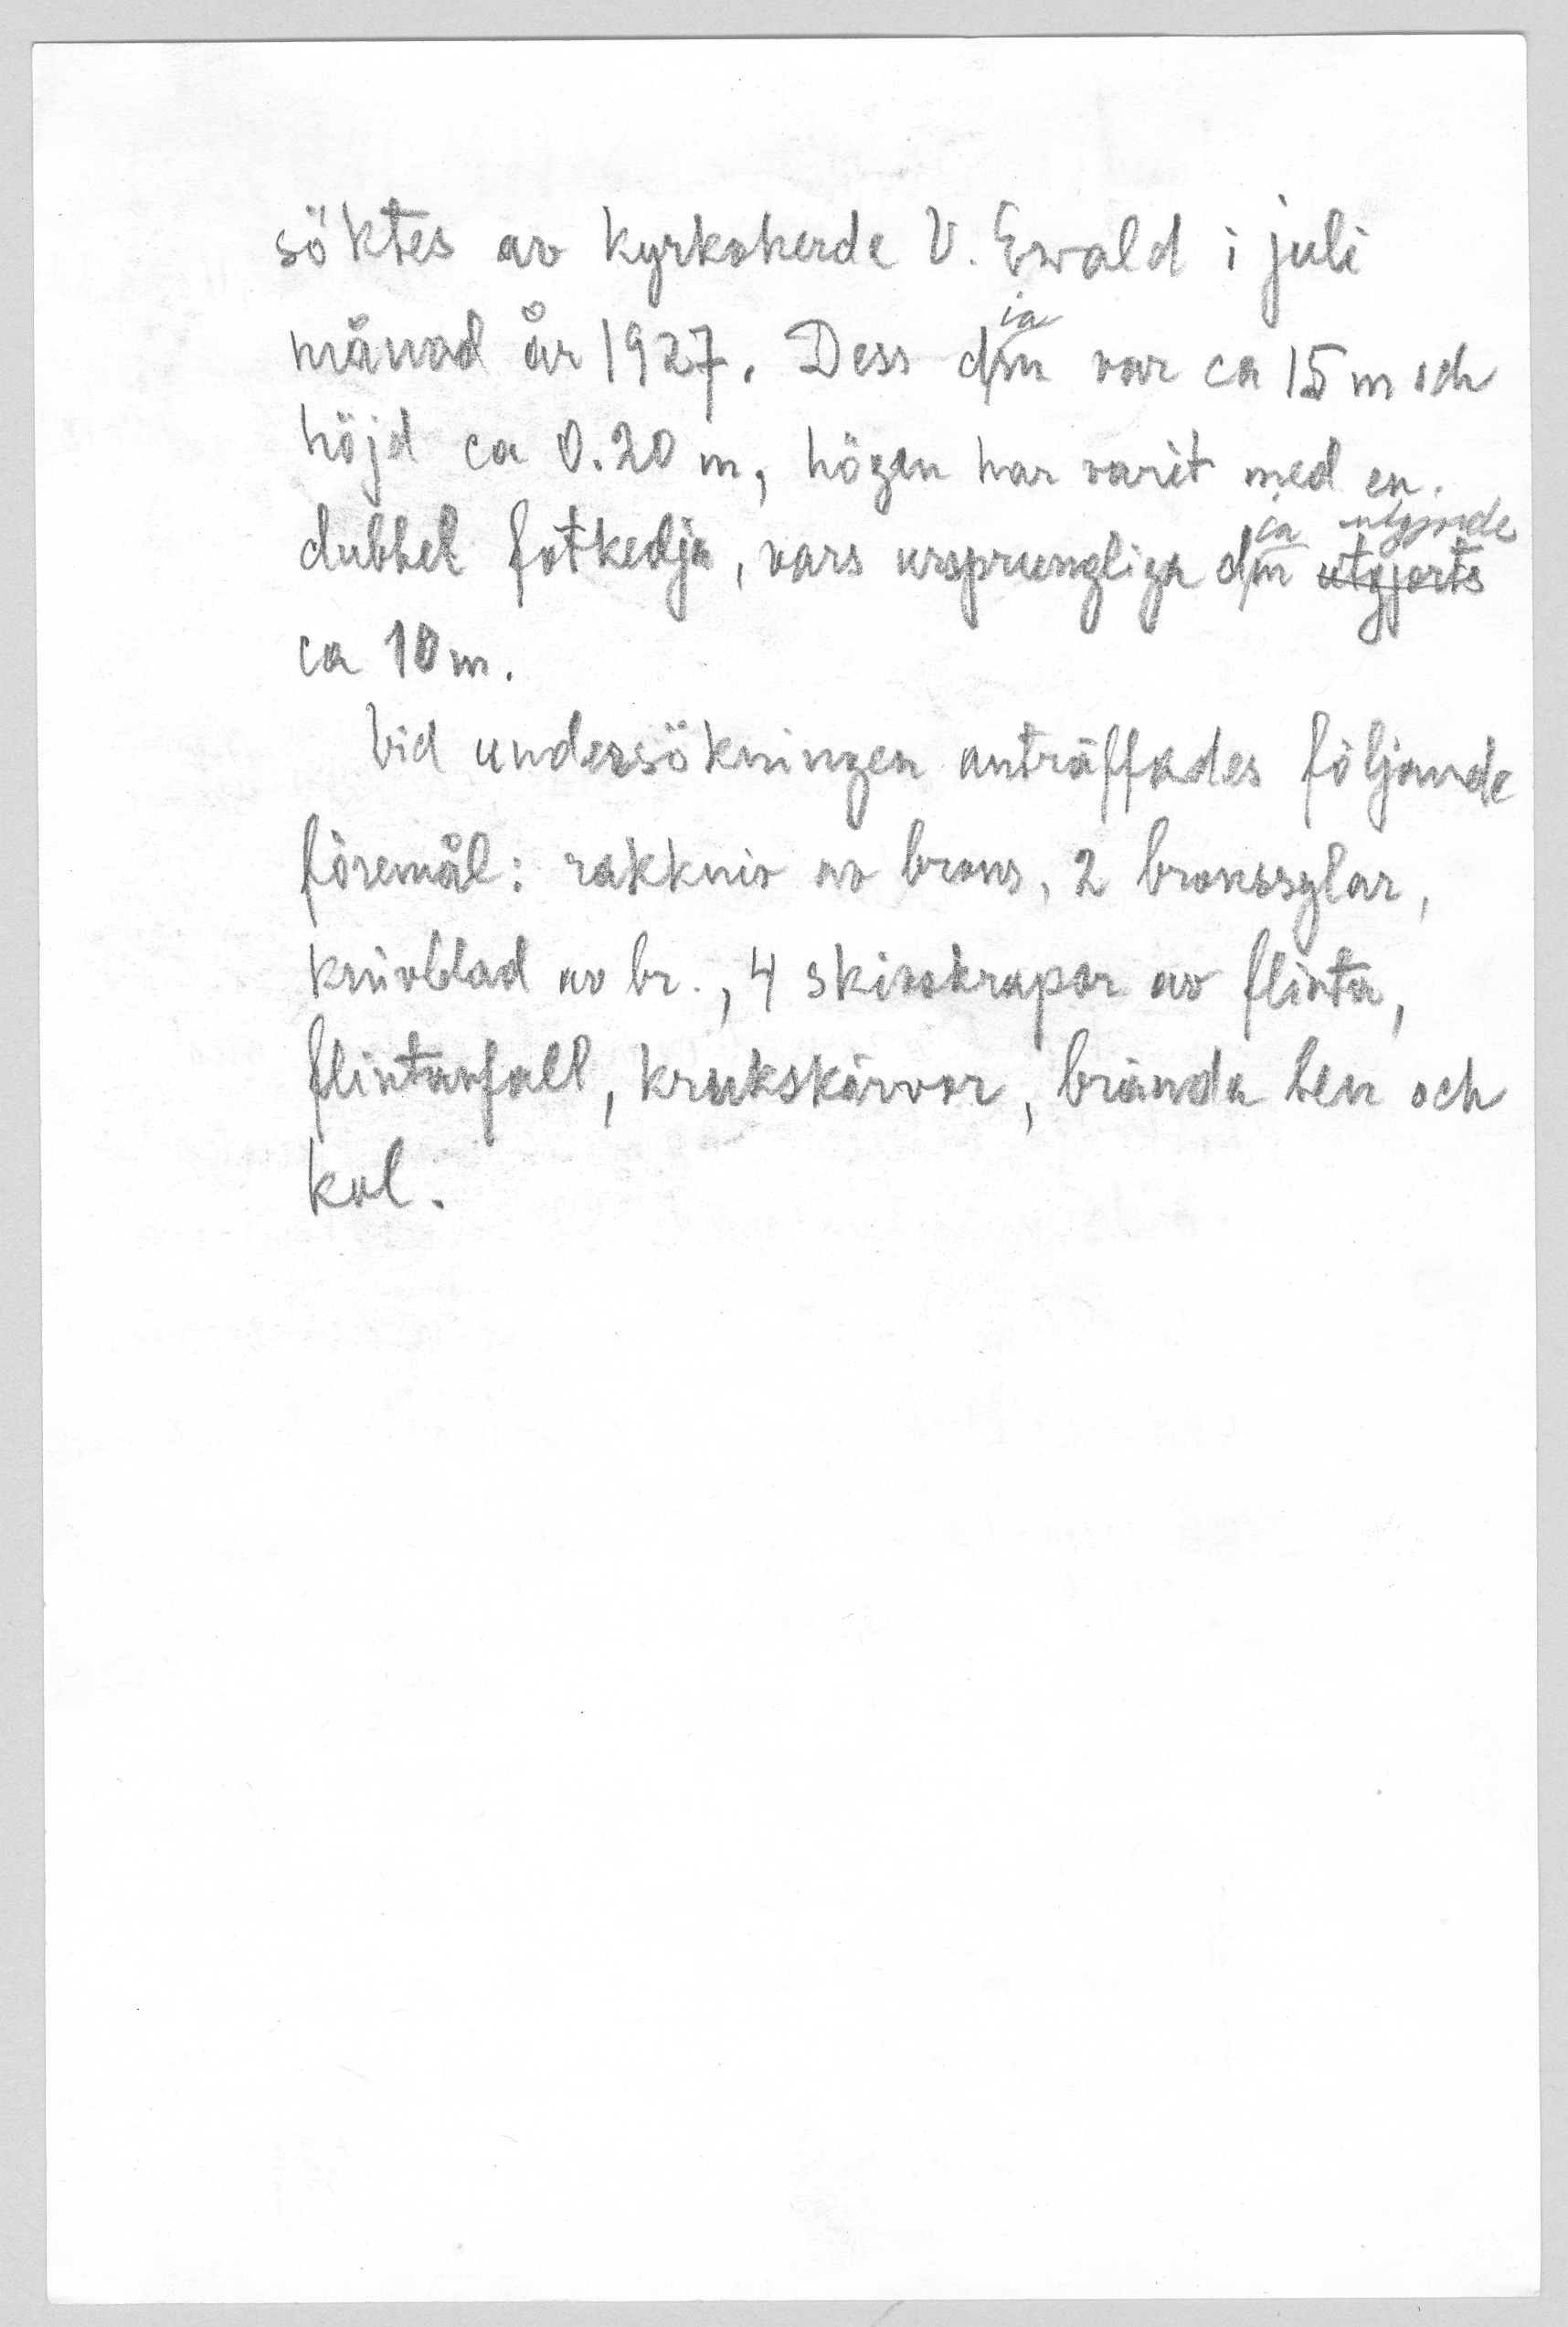 söktes av kyrkoherde V. Ewald i juli
månad år 1927. Dess diam var ca 15 m och
höjd ca 0.20 m, högen har varit med en
dubbel fotkedja, vars ursprungliga diam utgjorts utgjorde
ca 10 m.
Vid undersökningen anträffades följande
föremål: rakkniv av brons, 2 bronssylar,
knivblad av br., 4 skivskrapor av flinta,
flintavfall, krukskärvor, brända ben och
kol.